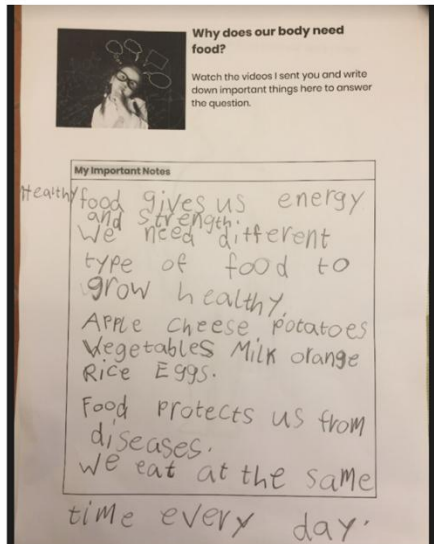 Why does our body need
food?
Watch the videos I sent you and write
down important things here to answer
the question.
My Important Notes
Healthy food gives us energy
and strength.
We need different
type of food to
grow healthy.
Apple cheese potatoes
Vegetables Milk orange
Rice Eggs.
Food protects us from
diseases.
We eat at the same
time every day.